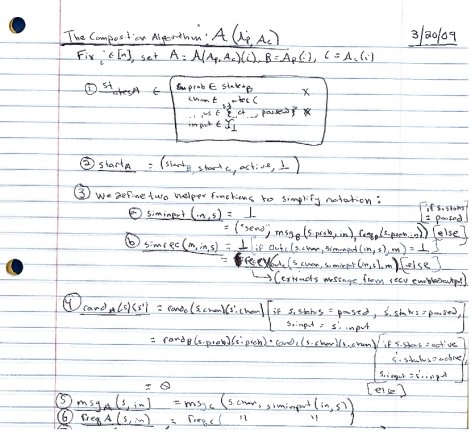 The Composition Algorithm: A(A_P, A_C) 3/20/09
Fix i ∈ [n], set A = A(A_P, A_C)(i), B = A_P(i), C = A_C(i)
① states_A ∈ { simprob ∈ states_B ×
chan ∈ states_C
status ∈ {active, paused} ×
input ∈ I_⊥
② start_A = (start_B, start_C, active, ⊥)
③ We define two helper functions to simplify notation:
ⓐ siminput(in, s) = ⊥ [if s.status = paused]
= ("send", msg_B(s.prob, in), freq_B(s.prob, in)) [else]
ⓑ simrec(m, in, s) = ⊥ [if out_C(s.chan, siminput(in, s), m) = ⊥]
out_C(s.chan, siminput(in, s), m) [else]
↳ (extracts message from recv enabled output)
④ rand_A(s)(s') = rand_C(s.chan)(s'.chan) [if s.status = paused, s'.status = paused,
s.input = s'.input
= rand_B(s.prob)(s'.prob) · rand_C(s.chan)(s'.chan) [if s.status = active
s'.status = active,
s.input = s'.input
= 0 [else]
⑤ msg_A(s, in) = msg_C(s.chan, siminput(in, s))
⑥ freq_A(s, in) = freq_C( " " )